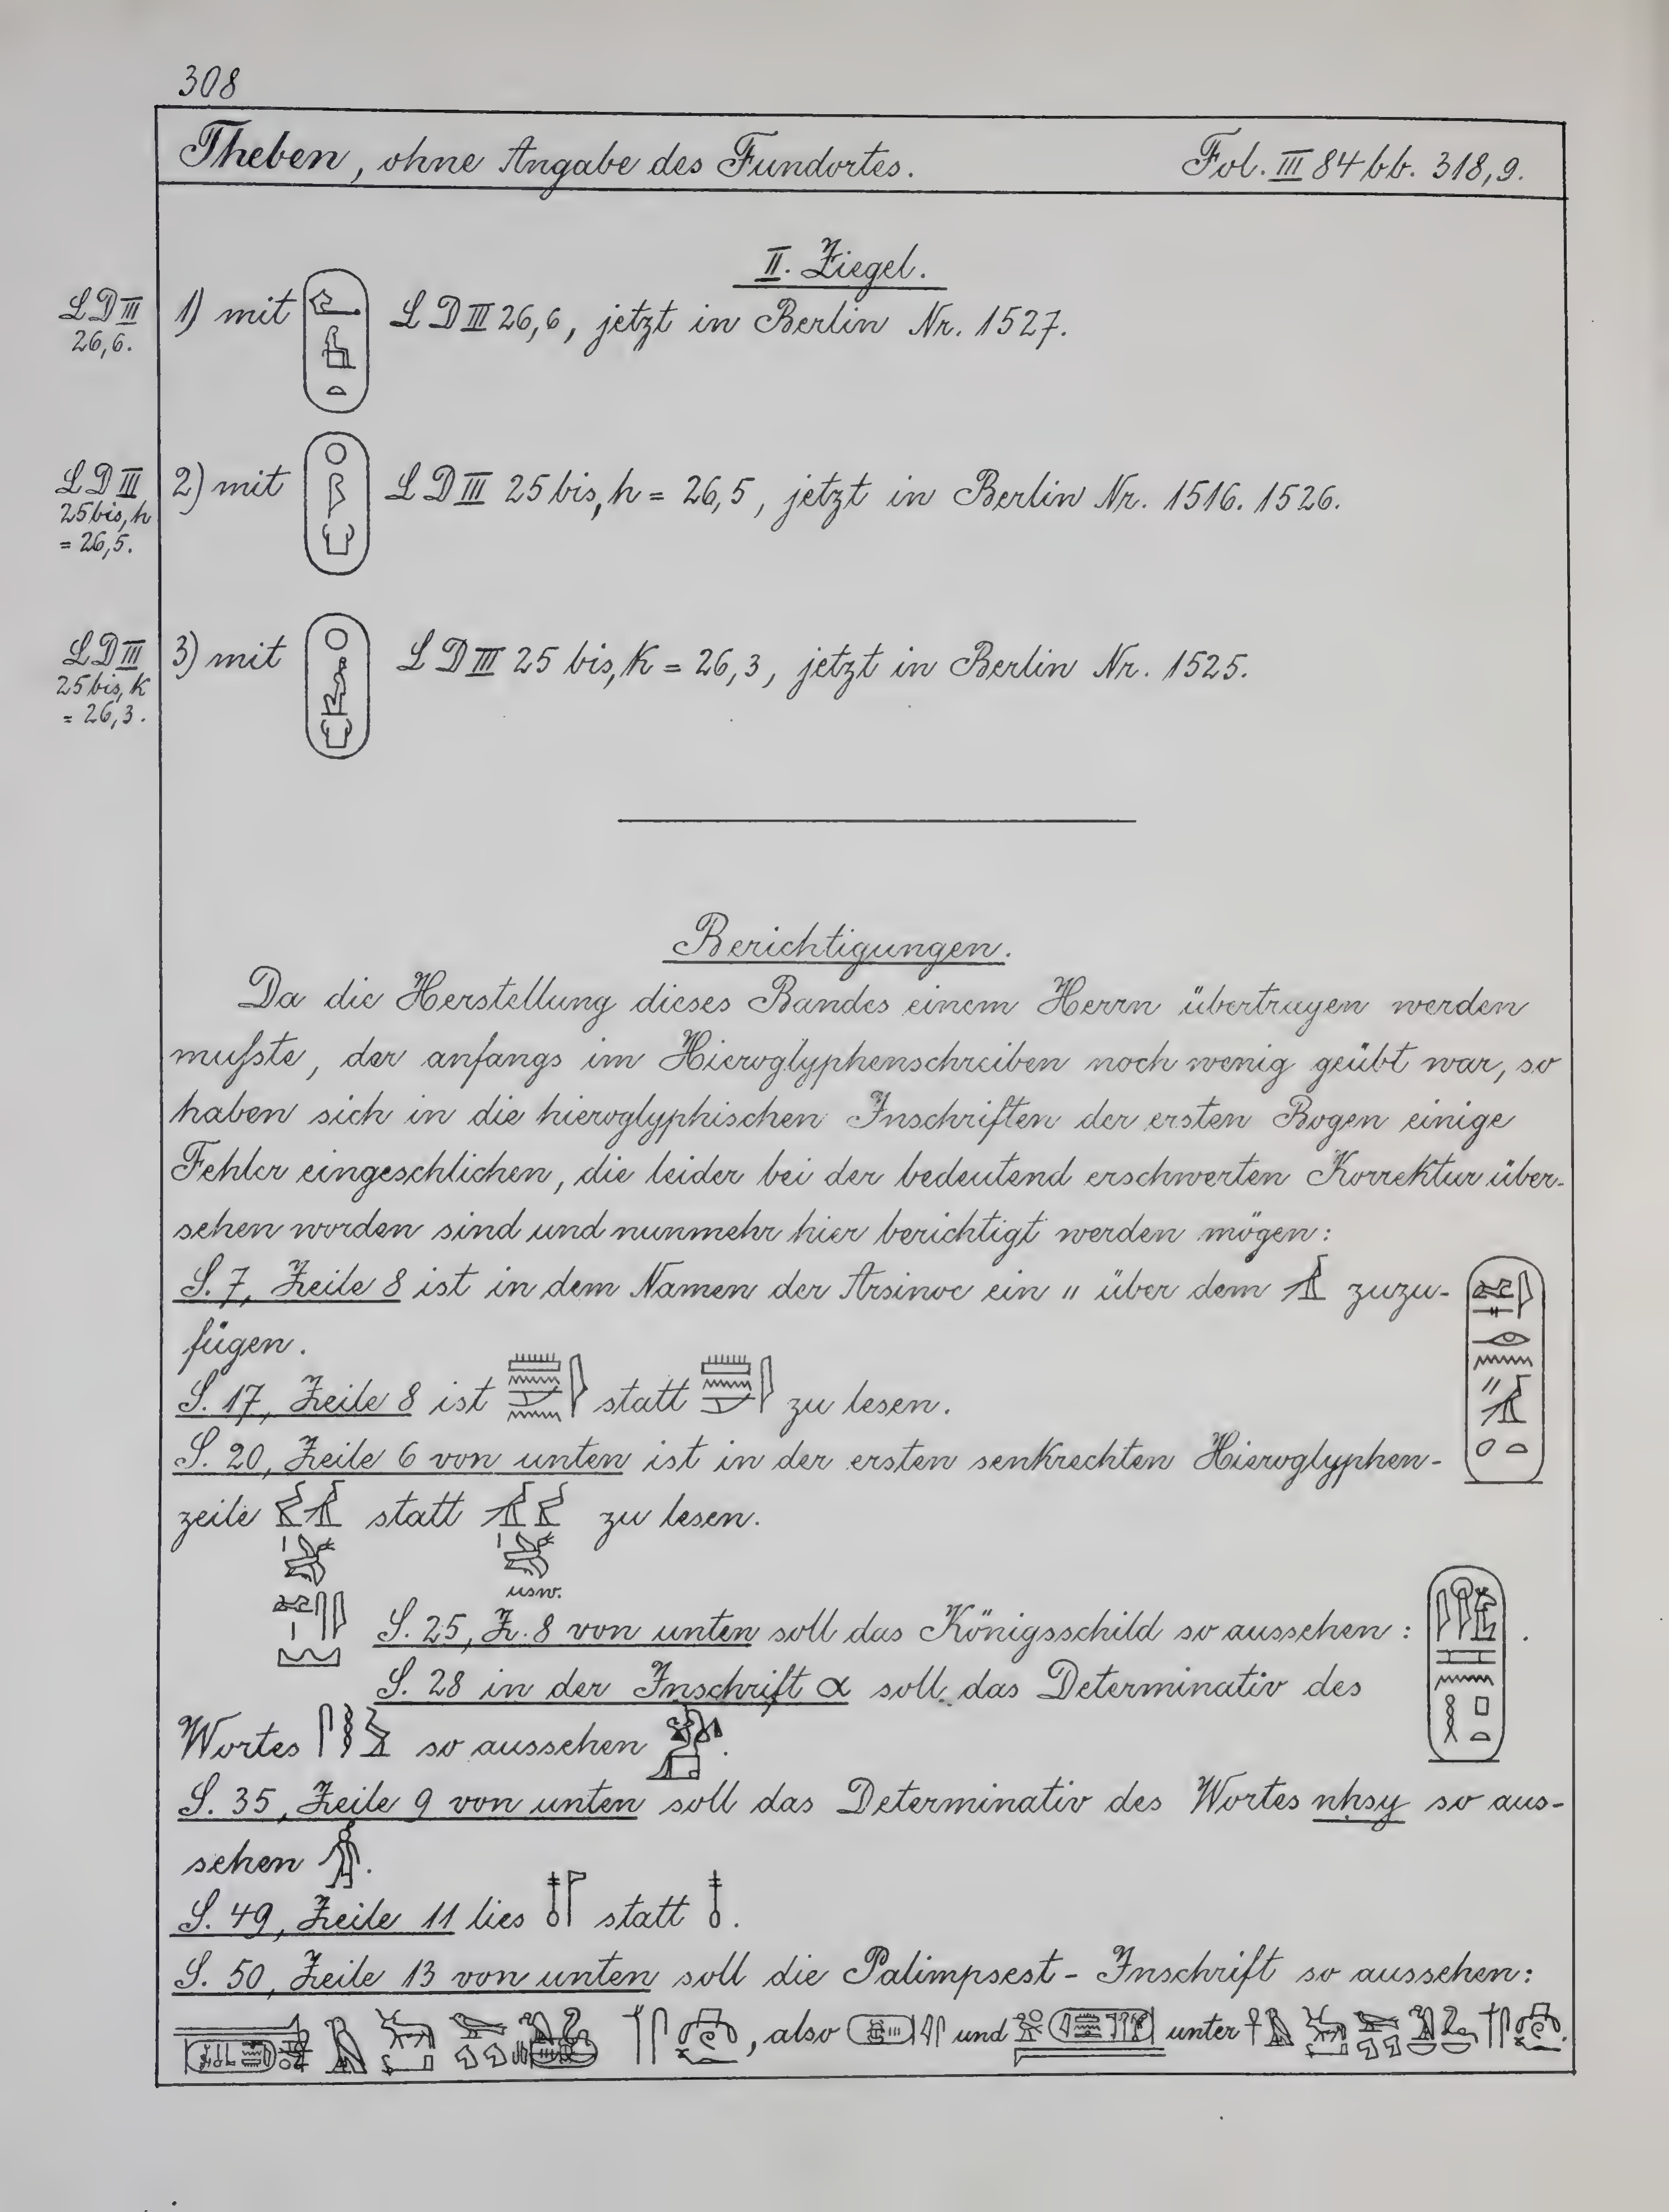 308
Theben, ohne Angabe des Fundortes. Fol. III 84 bb. 318,9.
II. Ziegel.
LD III 26,6.
1) mit LD III 26,6, jetzt in Berlin Nr. 1527.
LD III 25 bis, h = 26,5.
2) mit LD III 25 bis, h = 26,5, jetzt in Berlin Nr. 1516. 1526.
LD III 25 bis, k = 26,3.
3) mit LD III 25 bis, k = 26,3, jetzt in Berlin Nr. 1525.
Berichtigungen.
Da die Herstellung dieses Bandes einem Herrn übertragen werden
mußste, der anfangs im Hieroglyphenschreiben noch wenig geübt war, so
haben sich in die hieroglyphischen Inschriften der ersten Bogen einige
Fehler eingeschlichen, die leider bei der bedeutend erschwerten Korrektur über-
sehen worden sind und nunmehr hier berichtigt werden mögen:
S. 7, Zeile 8 ist in dem Namen der Arsinoe ein " über dem zuzu-
fügen.
S. 17, Zeile 8 ist statt zu lesen.
S. 20, Zeile 6 von unten ist in der ersten senkrechten Hieroglyphen-
zeile statt zu lesen.
usw.
S. 25, Z. 8 von unten soll das Königsschild so aussehen: .
S. 28 in der Inschrift α soll das Determinativ des
Wortes so aussehen .
S. 35, Zeile 9 von unten soll das Determinativ des Wortes nḥsy so aus-
sehen .
S. 49, Zeile 11 lies statt .
S. 50, Zeile 13 von unten soll die Palimpsest-Inschrift so aussehen:
, also und unter .